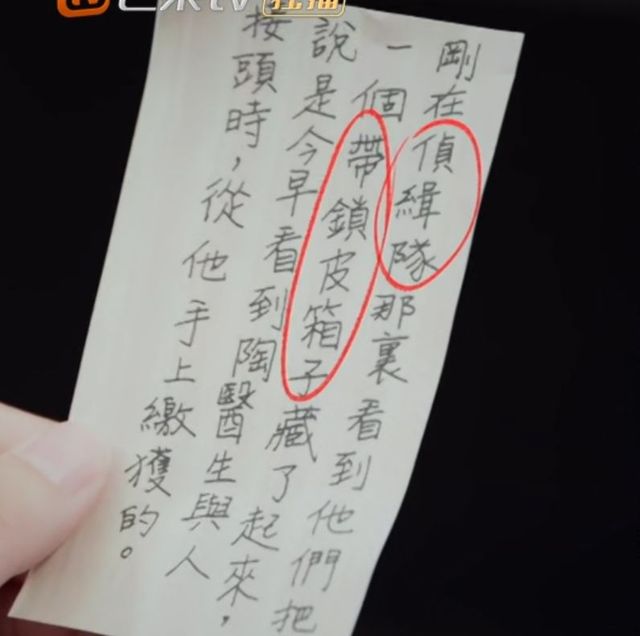 剛在偵緝隊那裏看到他們把
一個帶鎖皮箱子藏了起來，
說是今早看到陶醫生與人
接頭時，從他手上繳獲的。